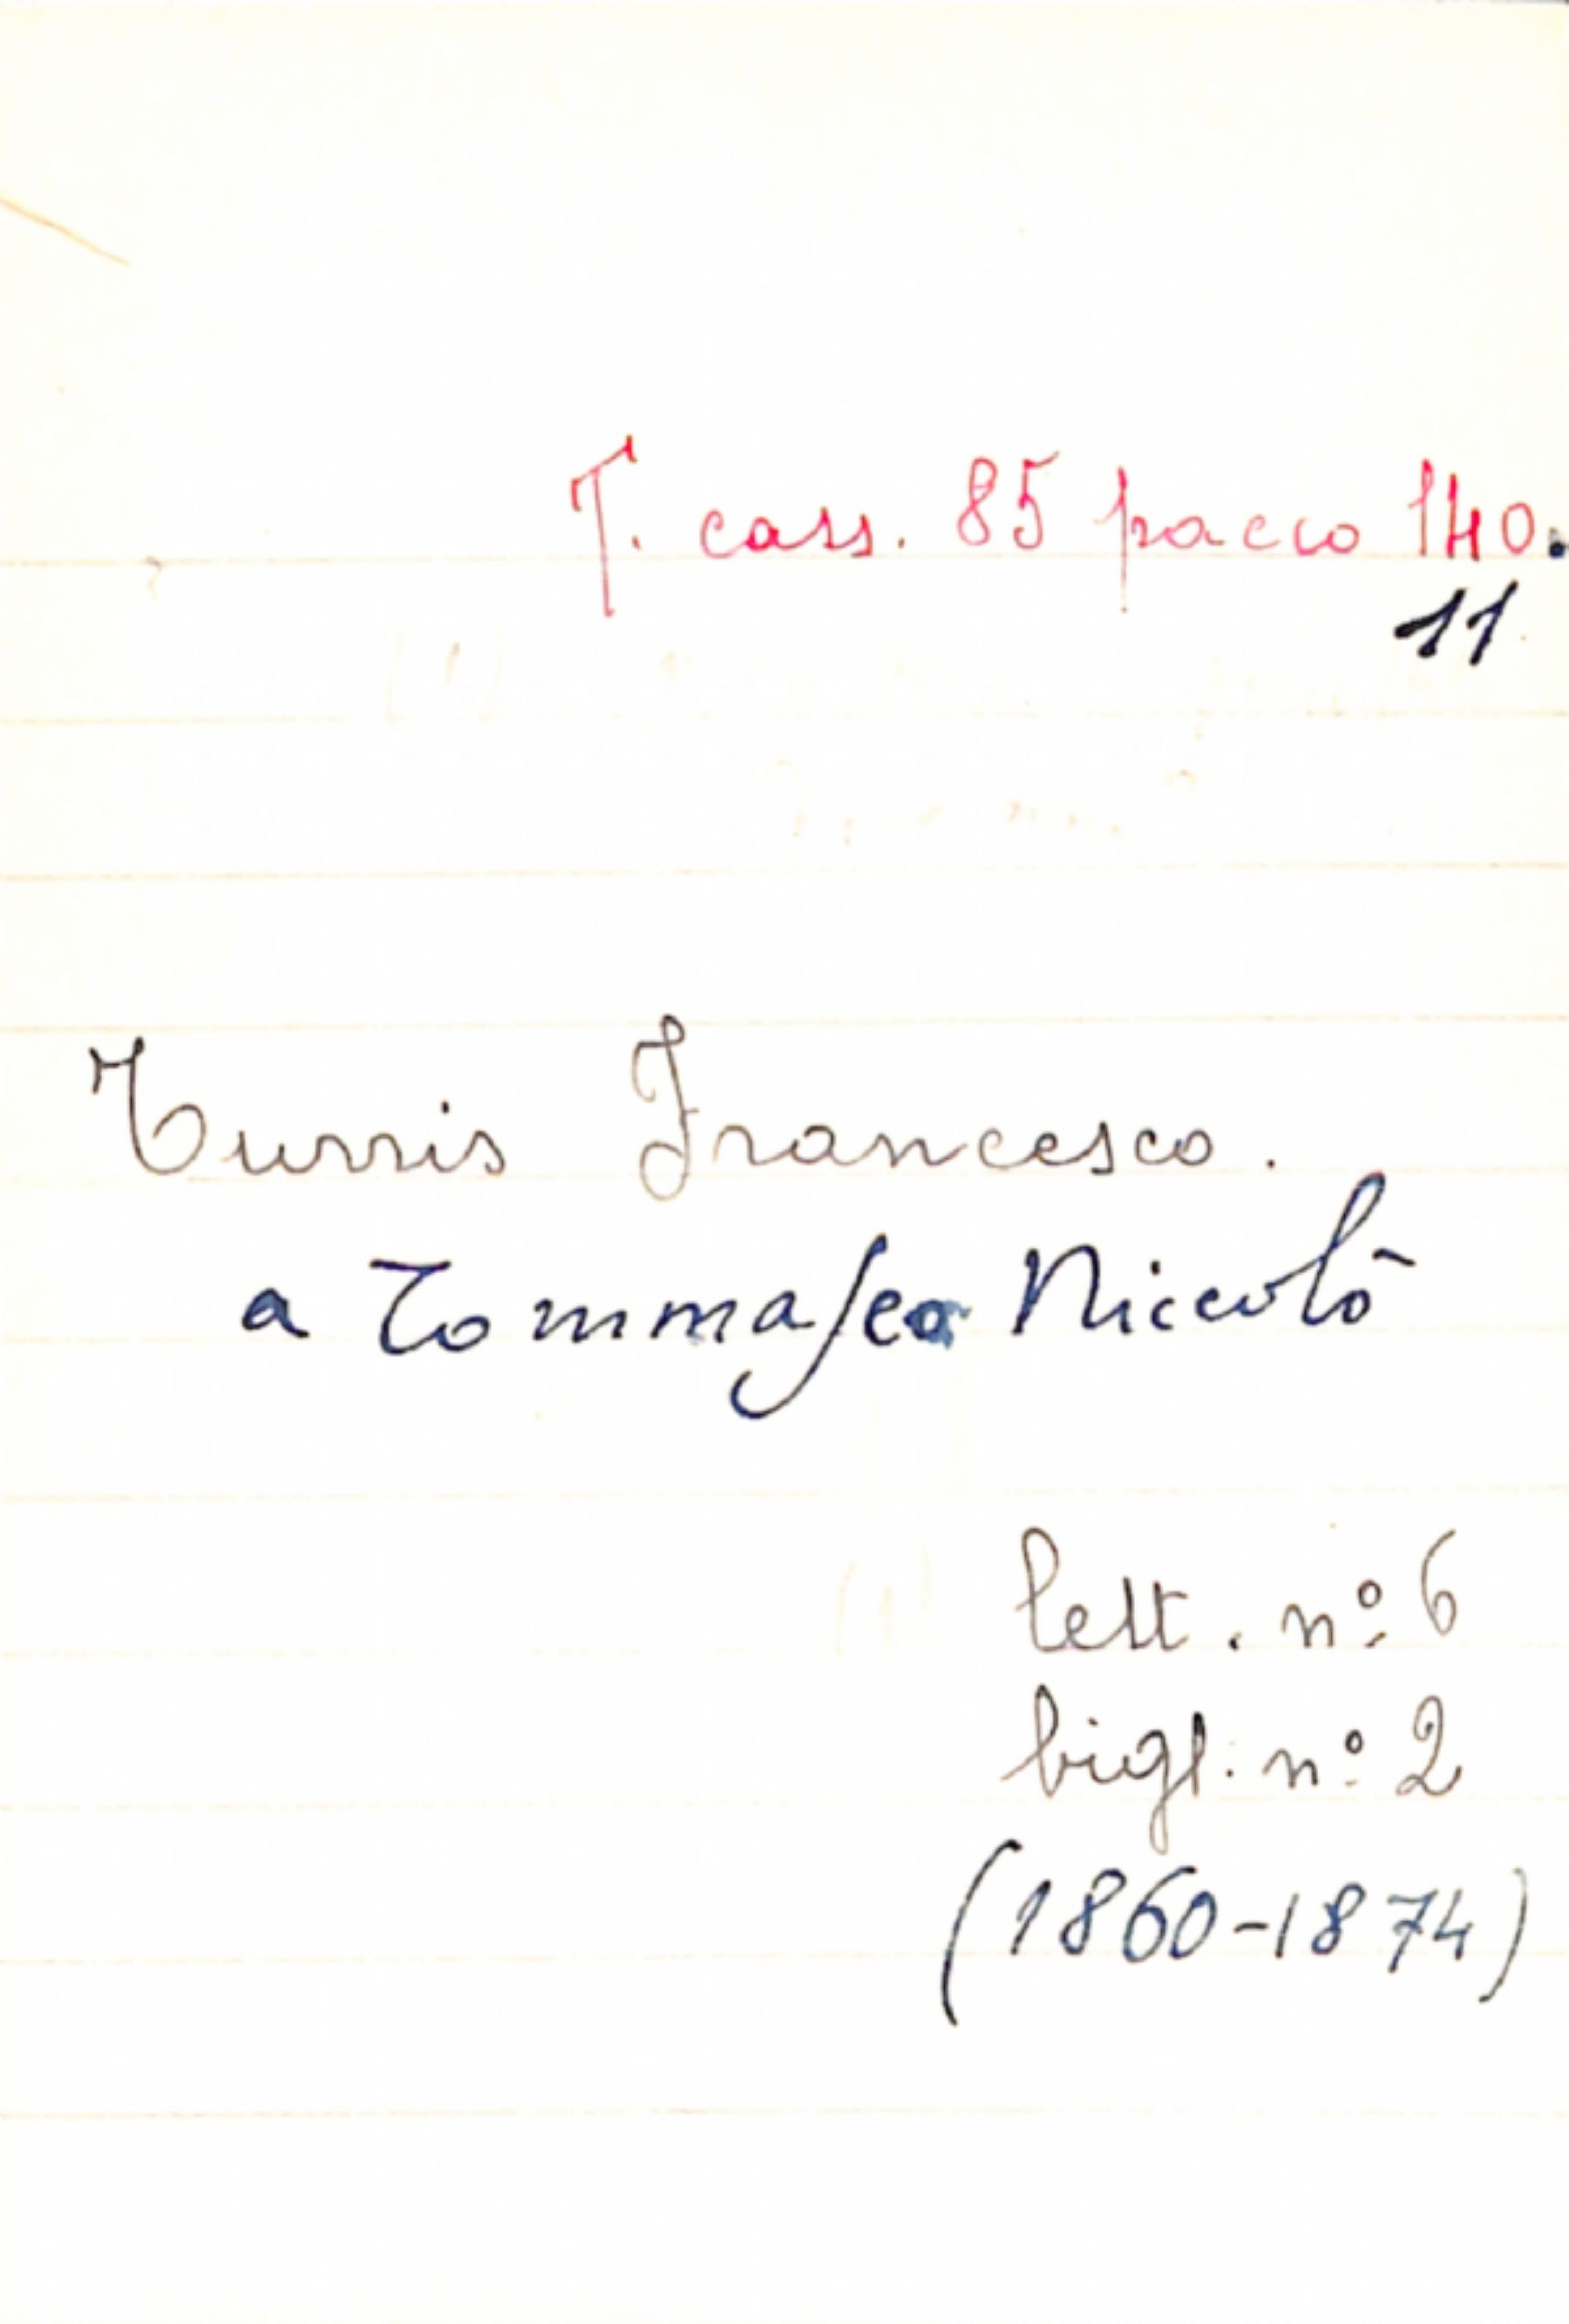 T. cass. 85 pacco 140.
11
Turris Francesco.
a Tommaseo Niccolò
lett. nº 6
bigl. nº 2
(1860-1874)